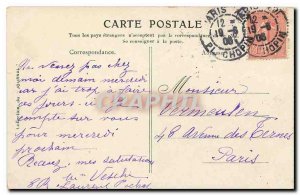 CARTE POSTALE
Tous les pays étrangers n'acceptent pas la correspondance
se renseigner à la poste.
Correspondance.
PARIS
12
PL. CHOPIN
Ne venez pas chez
moi demain mercredi
car j'ai trop à faire
ces jours. Je
compte sur vous
pour mercredi
prochain
mes salutations
Laurent Pichat
Monsieur
Vermeulen
48 Avenue des Ternes
Paris